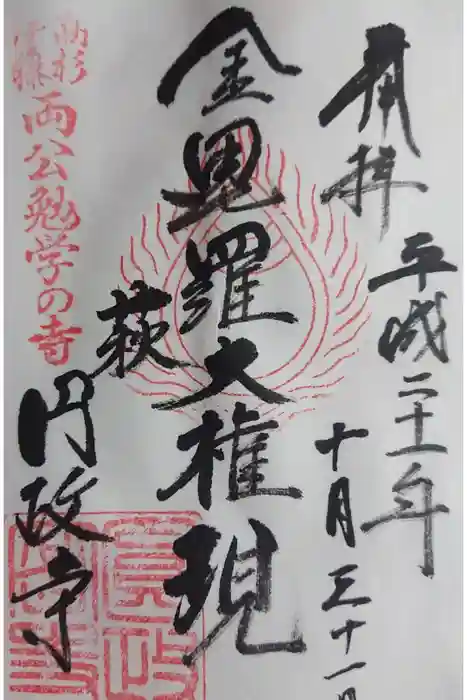 奉拝
平成二十一年
十月三十一日
金毘羅大権現
萩
円政寺
高杉
伊藤
両公勉学の寺